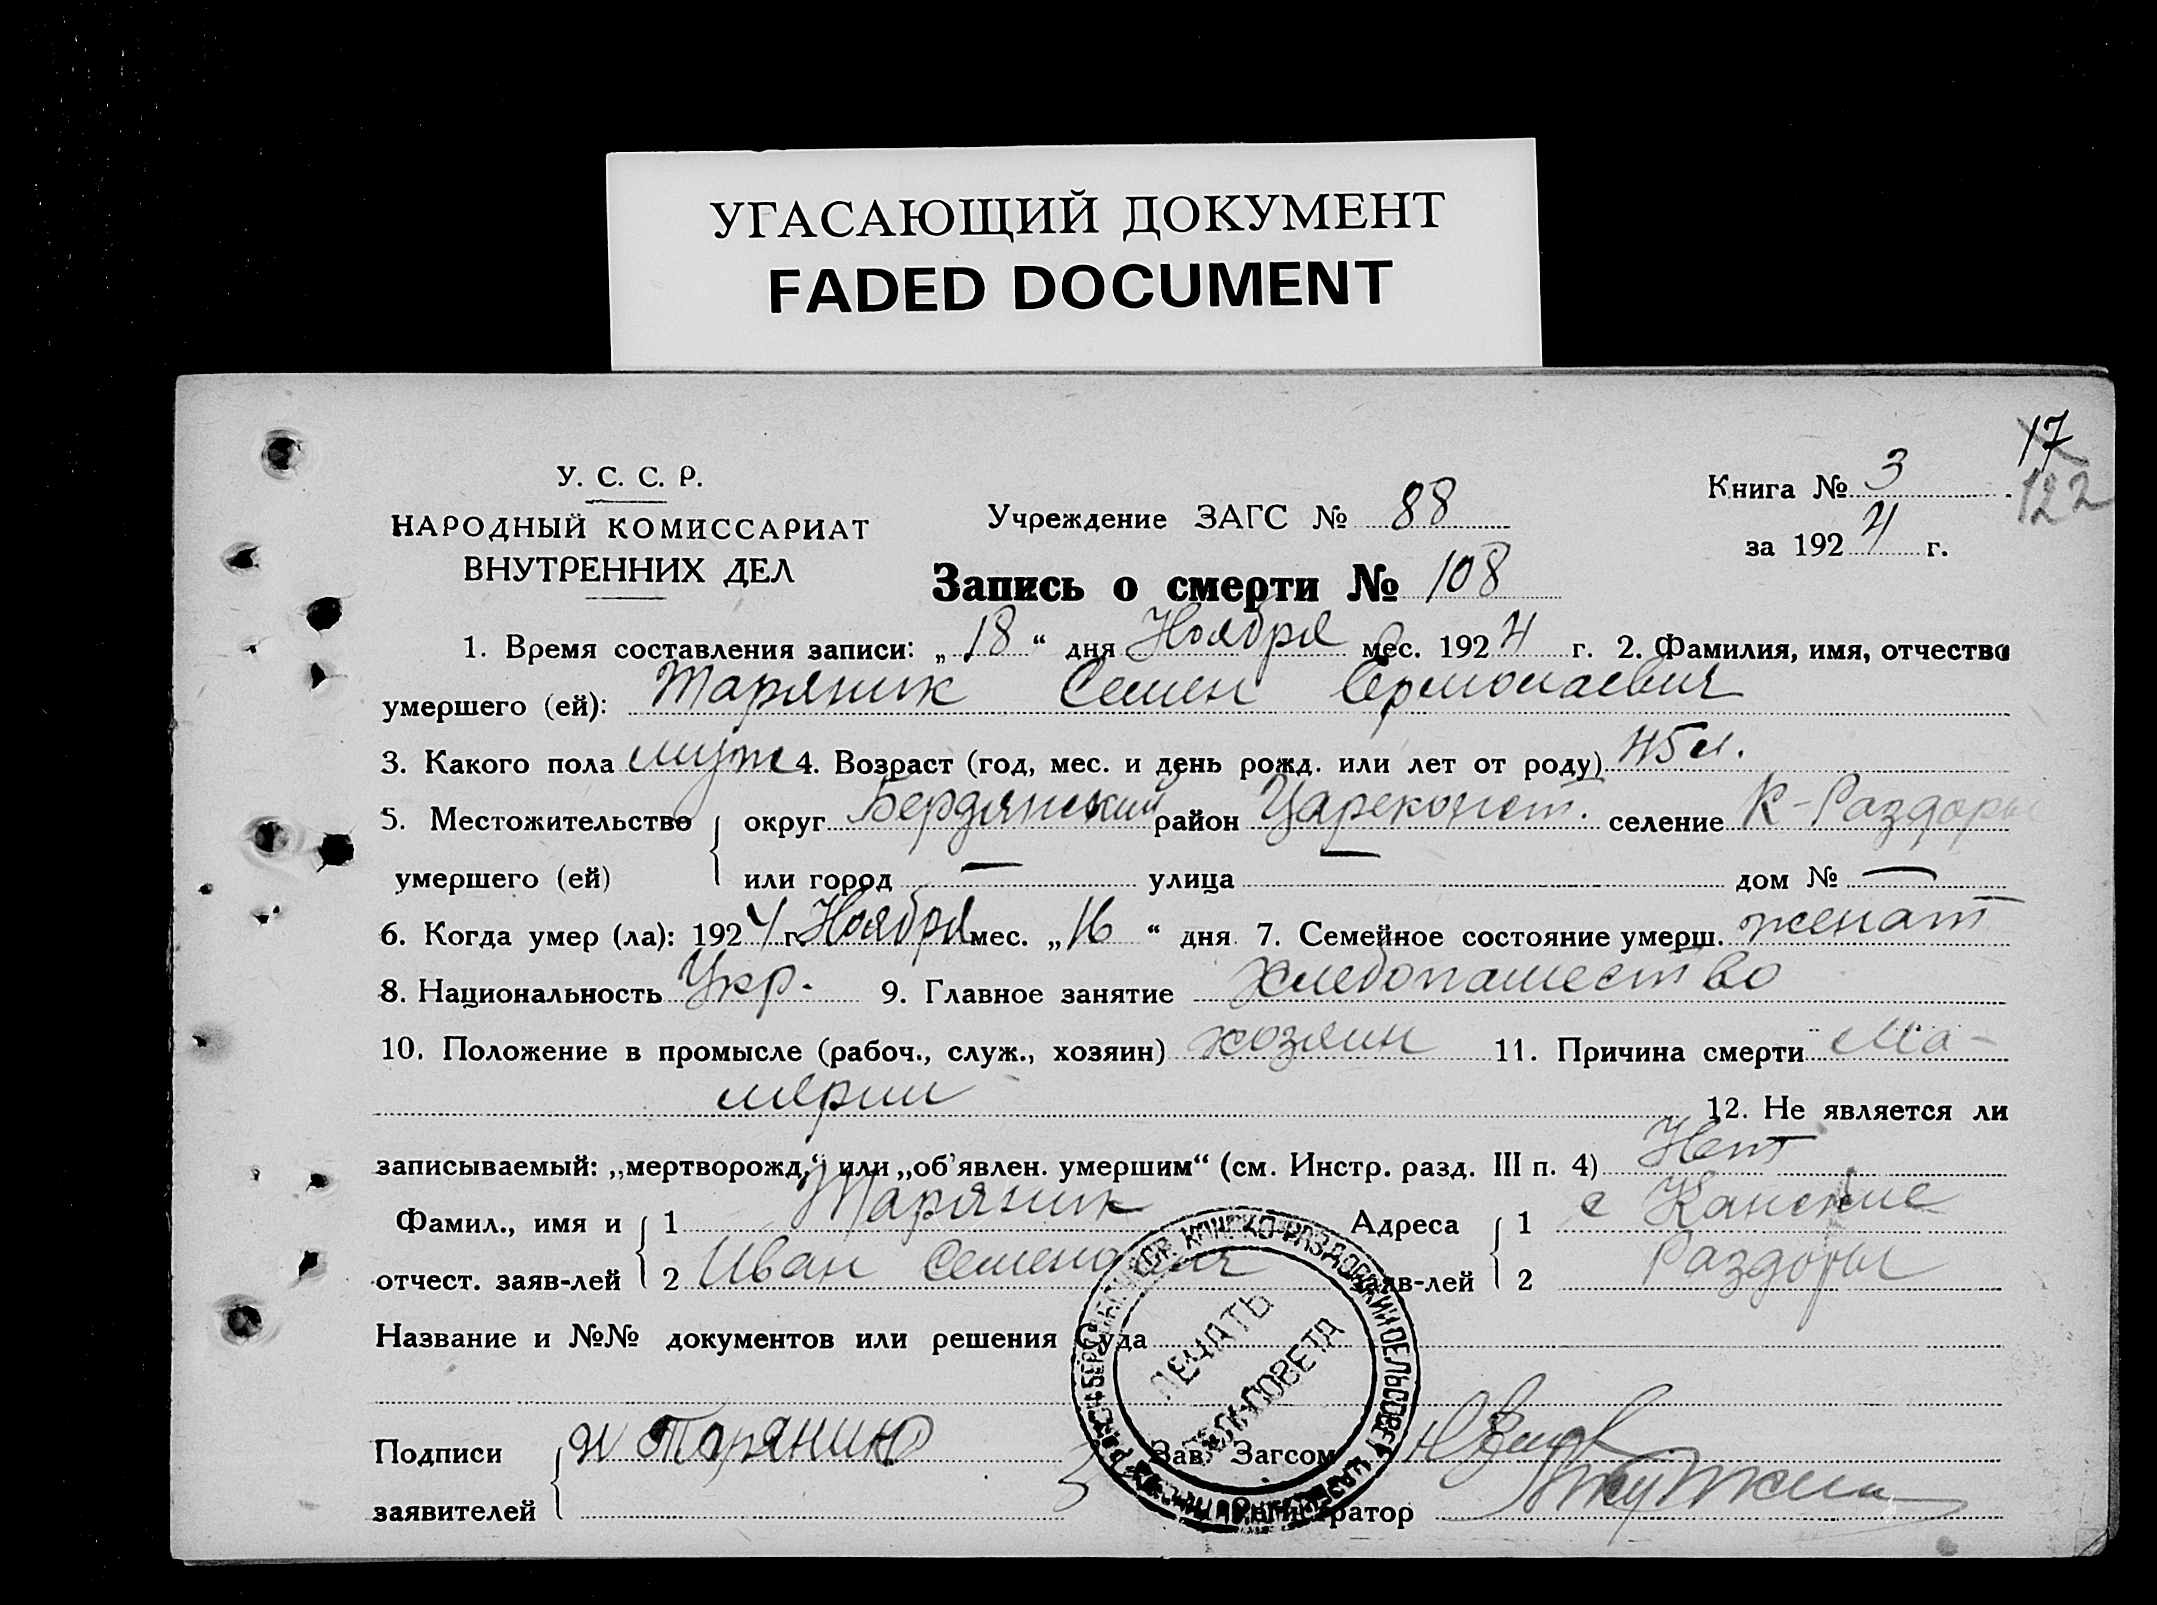 УГАСАЮЩИЙ ДОКУМЕНТ
FADED DOCUMENT
17
122
У. С. С. Р.
НАРОДНЫЙ КОМИССАРИАТ
ВНУТРЕННИХ ДЕЛ
Учреждение ЗАГС № 88
Книга № 3
за 1924 г.
Запись о смерти № 108
1. Время составления записи: „18“ дня Ноября мес. 1924 г. 2. Фамилия, имя, отчество
умершего (ей): Таряник Семен Ермолаевич
3. Какого пола муж 4. Возраст (год, мес. и день рожд. или лет от роду) 45 л.
5. Местожительство округ Бердянский район Цареконст. селение К-Раздоры
умершего (ей) или город — улица — дом № —
6. Когда умер (ла): 1924 г. Ноября мес. „16“ дня 7. Семейное состояние умерш. женат
8. Национальность Укр. 9. Главное занятие хлебопашество
10. Положение в промысле (рабоч., служ., хозяин) хозяин 11. Причина смерти Ма-
лярии
12. Не является ли
записываемый: „мертворожд.“ или „об'явлен. умершим“ (см. Инстр. разд. III п. 4) Нет
Фамил., имя и 1 Таряник Адреса 1 с Канские
отчест. заяв-лей 2 Иван Семенович заяв-лей 2 Раздоры
Название и №№ документов или решения Суда
ПЕЧАТЬ
СЕЛЬСОВЕТА
Подписи И Таряник Зав. Загсом
заявителей Регистратор